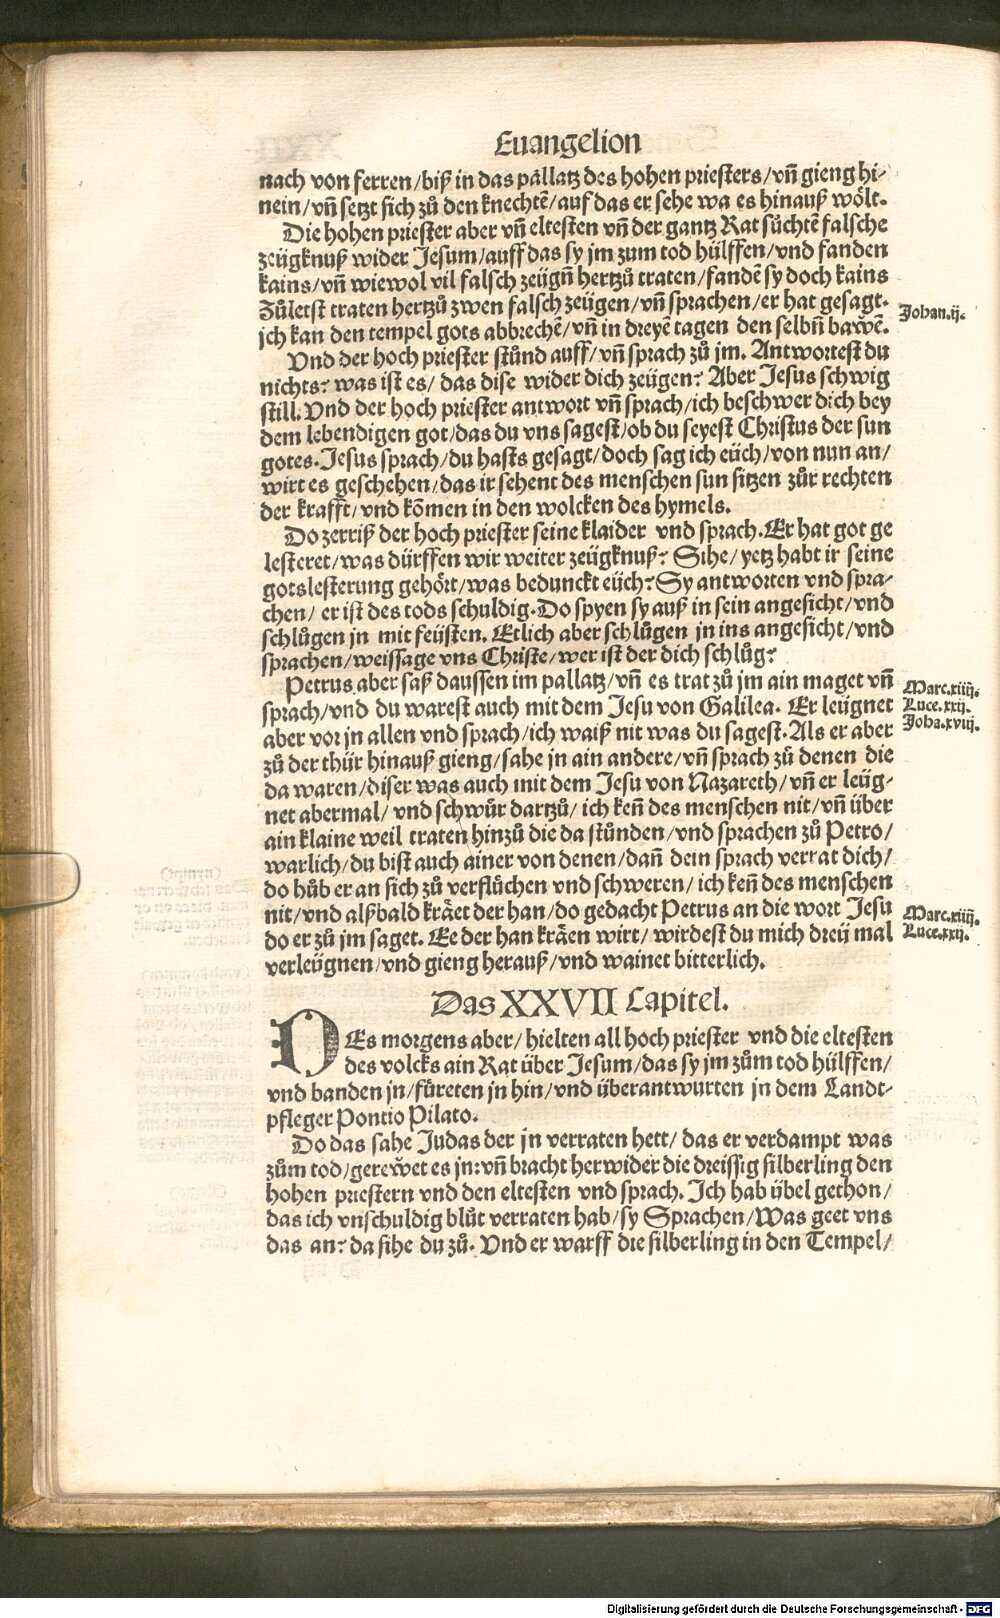 Euangelion
nach von ferren/biß in das pallatz des hohen priesters/vñ gieng hi-
nein/vñ setzt sich zů den knechtẽ/auf das er sehe wa es hinauß wölt.
Die hohen priester aber vñ eltesten vñ der gantz Rat sůchtẽ falsche
zeügknuß wider Jesum/auff das sy jm zum tod hülffen/vnd fanden
kains/vñ wiewol vil falsch zeügñ hertzů traten/fandẽ sy doch kains
Zůletst traten hertzů zwen falsch zeügen/vñ sprachen/er hat gesagt.
ich kan den tempel gots abbrechẽ/vñ in dreyẽ tagen den selbñ bawẽ.
Johan.ij.
Vnd der hoch priester stůnd auff/vñ sprach zů jm. Antwortest du
nichts? was ist es/ das dise wider dich zeügen? Aber Jesus schwig
still. Vnd der hoch priester antwort vñ sprach/ich beschwer dich bey
dem lebendigen got/das du vns sagest/ob du seyest Christus der sun
gotes. Jesus sprach/du hasts gesagt/doch sag ich eüch/von nun an/
wirt es geschehen/das ir sehent des menschen sun sitzen zůr rechten
der krafft/vnd kõmen in den wolcken des hymels.
Do zerriß der hoch priester seine klaider vnd sprach. Er hat got ge
lesteret/was dürffen wir weiter zeügknuß? Sihe/yetz habt ir seine
gotslesterung gehört/was bedunckt eüch? Sy antworten vnd spra-
chen/ er ist des tods schuldig. Do spyen sy auß in sein angesicht/vnd
schlůgen jn mit feüsten. Etlich aber schlůgen jn ins angesicht/vnd
sprachen/weissage vns Christe/wer ist der dich schlůg?
Petrus aber saß daussen im pallatz/vñ es trat zů jm ain maget vñ
sprach/vnd du warest auch mit dem Jesu von Galilea. Er leügnet
aber vor jn allen vnd sprach/ich waiß nit was du sagest. Als er aber
Marc.xiiij.
Luce.xxij.
Joha.xviij.
zů der thür hinauß gieng/sahe jn ain andere/vñ sprach zů denen die
da waren/diser was auch mit dem Jesu von Nazareth/vñ er leüg-
net abermal/ vnd schwůr dartzů/ ich keñ des menschen nit/vñ über
ain klaine weil traten hinzů die da stůnden/vnd sprachen zů Petro/
warlich/du bist auch ainer von denen/dañ dein sprach verrat dich/
do hůb er an sich zů verflůchen vnd schweren/ ich keñ des menschen
nit/vnd alßbald kräet der han/do gedacht Petrus an die wort Jesu
do er zů jm saget. Ee der han kräen wirt/ wirdest du mich dreij mal
Marc.xiiij.
Luce.xxij.
verleügnen/vnd gieng herauß/vnd wainet bitterlich.
Das XXVII Capitel.
DEs morgens aber/ hielten all hoch priester vnd die eltesten
des volcks ain Rat über Jesum/das sy jm zům tod hülffen/
vnd banden jn/füreten jn hin/vnd überantwurten jn dem Landt-
pfleger Pontio Pilato.
Do das sahe Judas der jn verraten hett/ das er verdampt was
zům tod/gereẘet es jn:vñ bracht herwider die dreissig silberling den
hohen priestern vnd den eltesten vnd sprach. Ich hab übel gethon/
das ich vnschuldig blůt verraten hab/sy Sprachen/Was geet vns
das an? da sihe du zů. Vnd er warff die silberling in den Tempel/
Digitalisierung gefördert durch die Deutsche Forschungsgemeinschaft - DFG